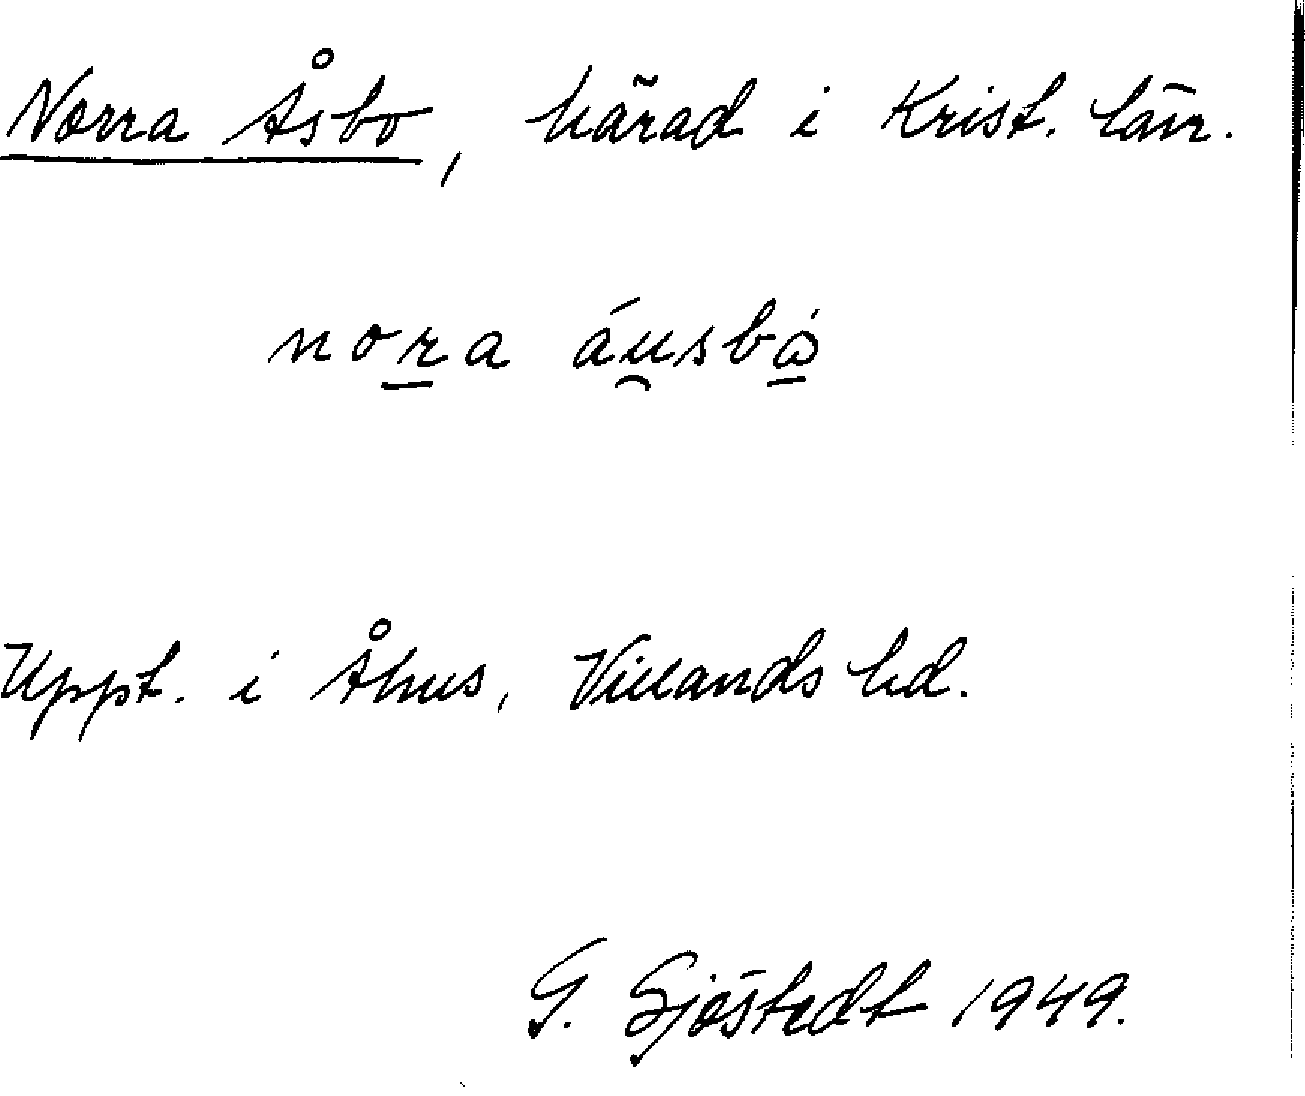 Norra Åsbo, härad i Krist. län.
nora áusbo
Uppt. i Åhus, Villands hd.
G. Sjöstedt 1949.